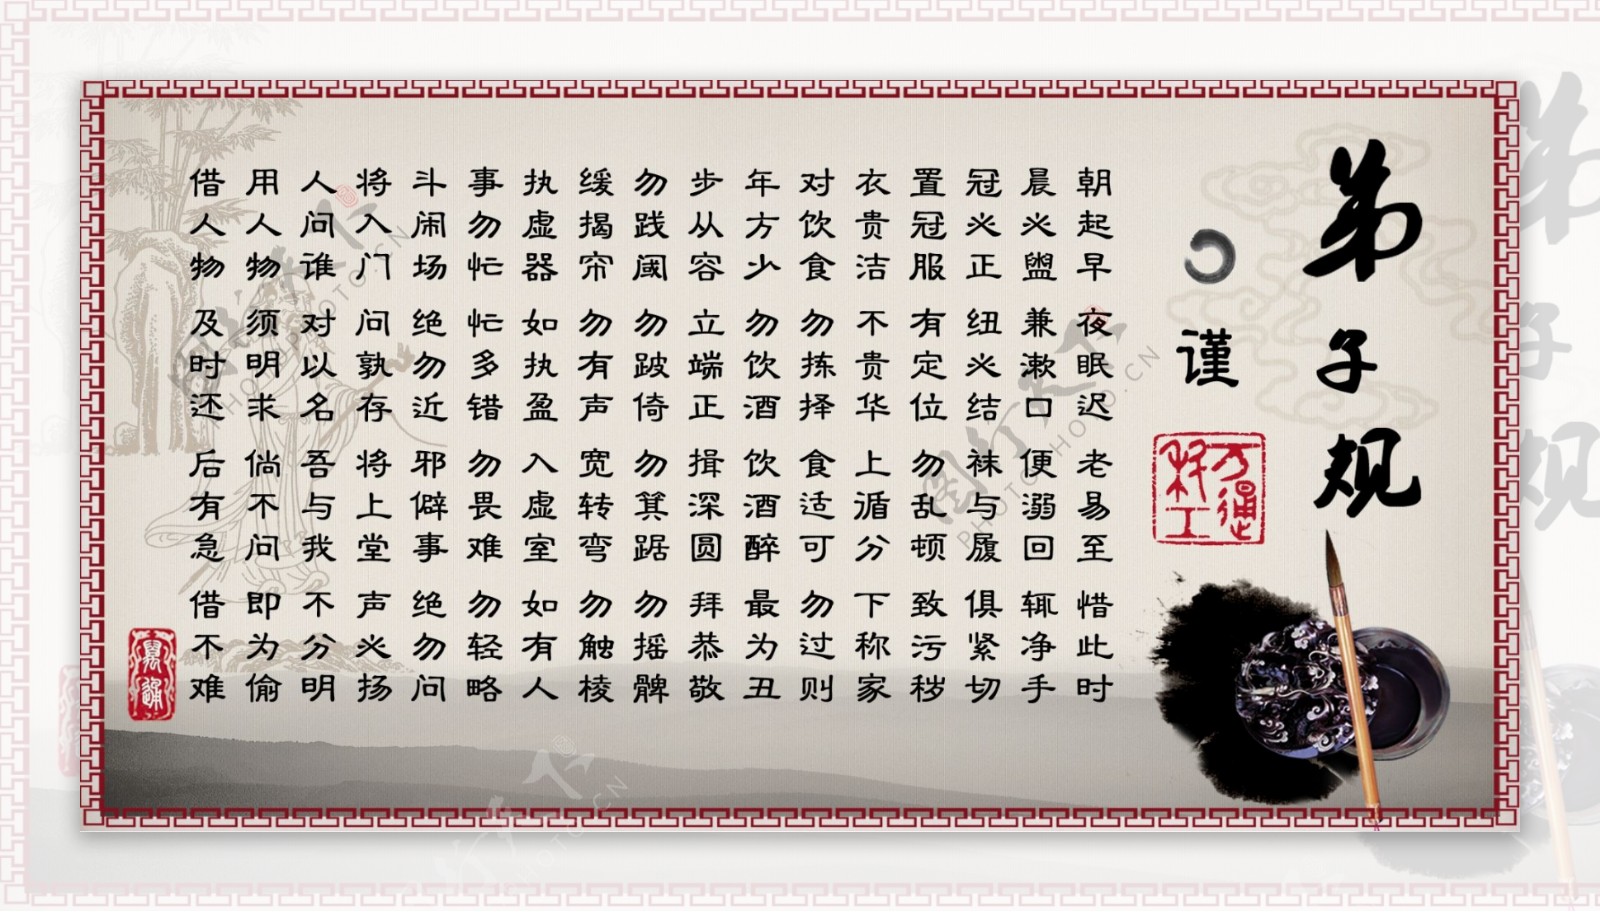 弟子规
谨
朝起早 夜眠迟 老易至 惜此时
晨必盥 兼漱口 便溺回 辄净手
冠必正 纽必结 袜与履 俱紧切
置冠服 有定位 勿乱顿 致污秽
衣贵洁 不贵华 上循分 下称家
对饮食 勿拣择 食适可 勿过则
年方少 勿饮酒 饮酒醉 最为丑
步从容 立端正 揖深圆 拜恭敬
勿践阈 勿跛倚 勿箕踞 勿摇髀
缓揭帘 勿有声 宽转弯 勿触棱
执虚器 如执盈 入虚室 如有人
事勿忙 忙多错 勿畏难 勿轻略
斗闹场 绝勿近 邪僻事 绝勿问
将入门 问孰存 将上堂 声必扬
人问谁 对以名 吾与我 不分明
用人物 须明求 倘不问 即为偷
借人物 及时还 后有急 借不难